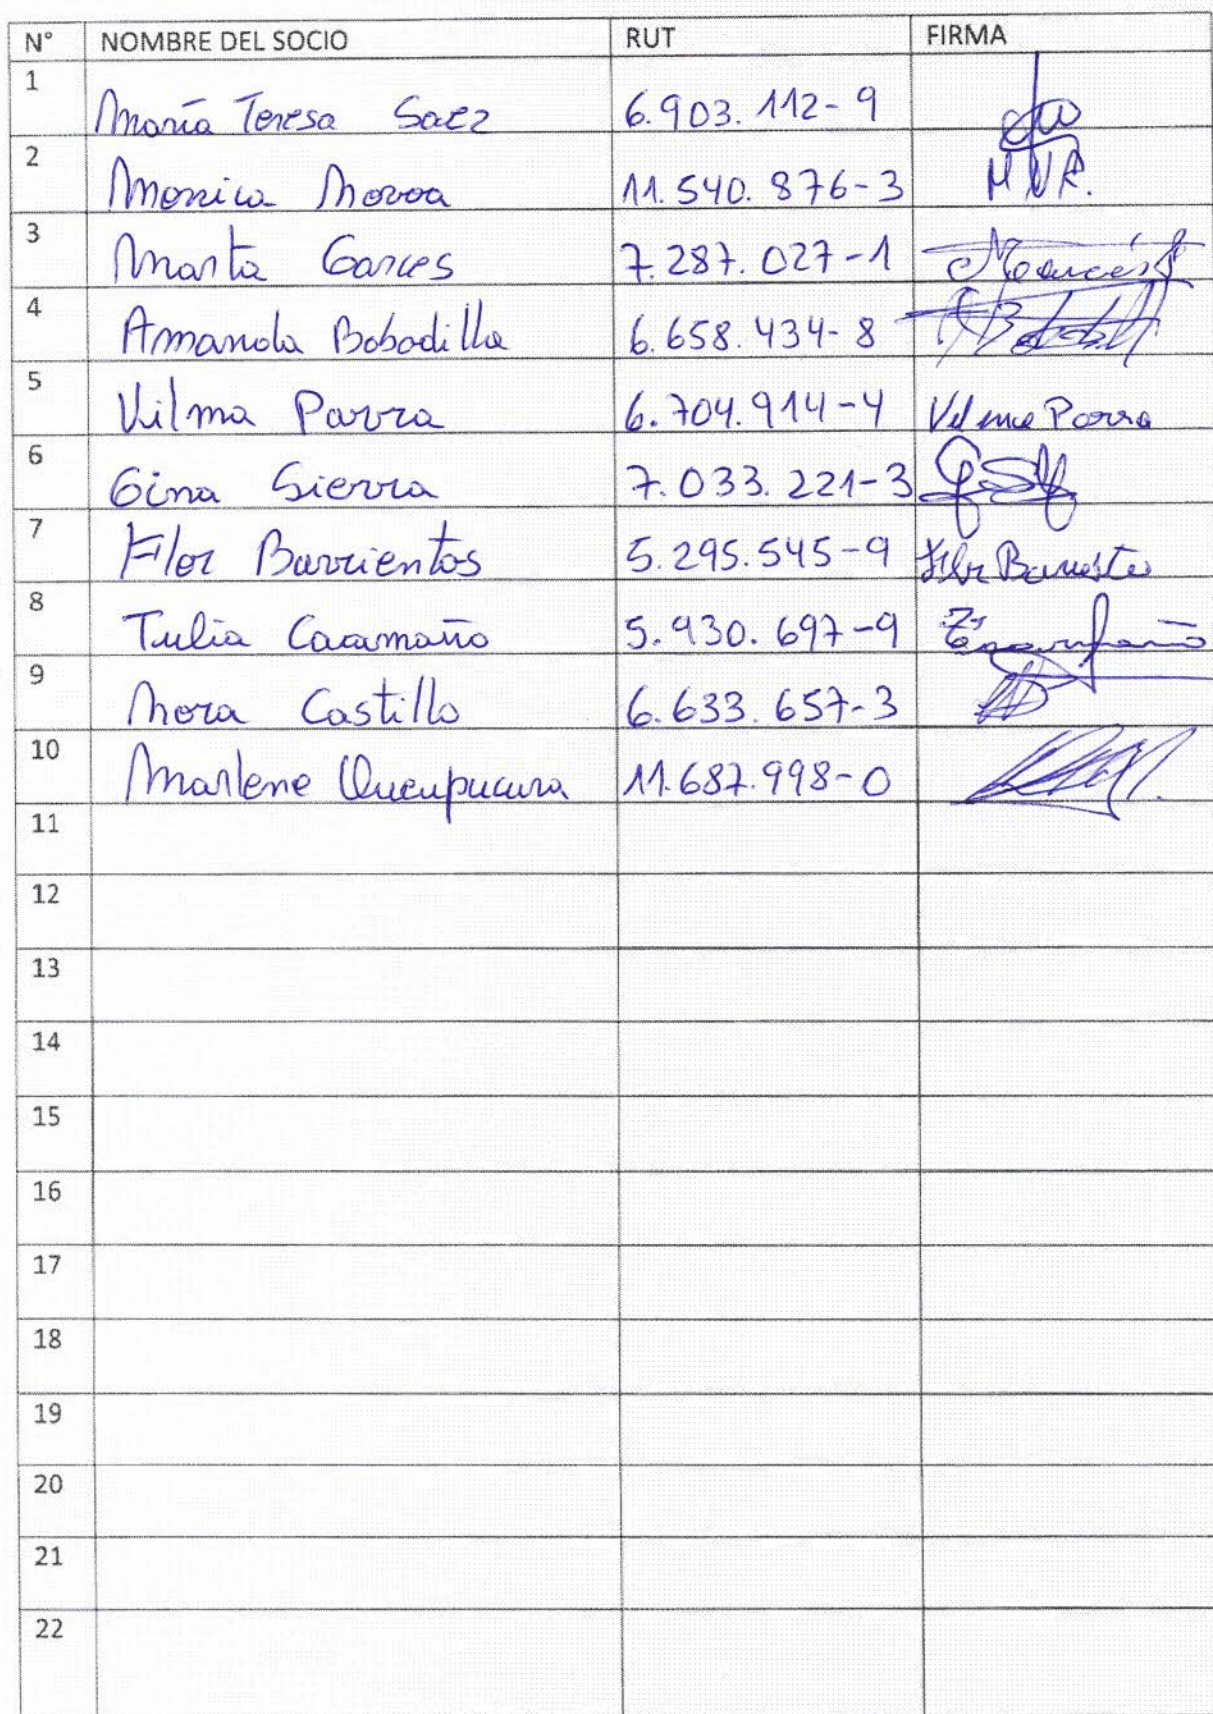 N° NOMBRE DEL SOCIO RUT FIRMA
1 María Teresa Saez 6.903.112-9
2 Monica Novoa 11.540.876-3 MNR.
3 Marta Garces 7.287.027-1
4 Amanda Bobadilla 6.658.434-8
5 Vilma Parra 6.704.914-4 Vilma Parra
6 Gina Sierra 7.033.221-3
7 Flor Barrientos 5.295.545-9
8 Tulia Caamaño 5.930.697-9
9 Nora Castillo 6.633.657-3
10 Marlene Queupucura 11.687.998-0
11
12
13
14
15
16
17
18
19
20
21
22